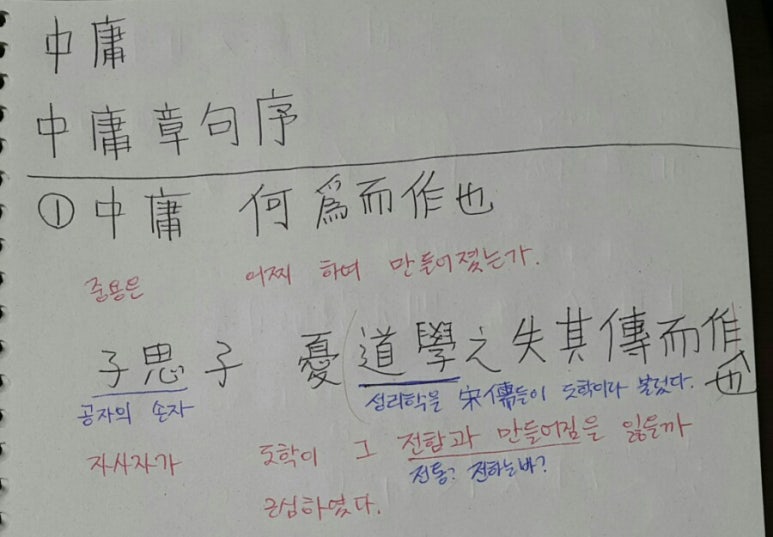 中庸
中庸章句序
① 中庸 何爲而作也
중용은 어찌 하여 만들어졌는가.
子思子 憂(道學之失其傳而作也
공자의 손자 성리학을 宋儒들이 도학이라 불렀다.
자사자가 도학이 그 전함과 만들어짐을 잃을까
전통? 전하는바?
근심하였다.